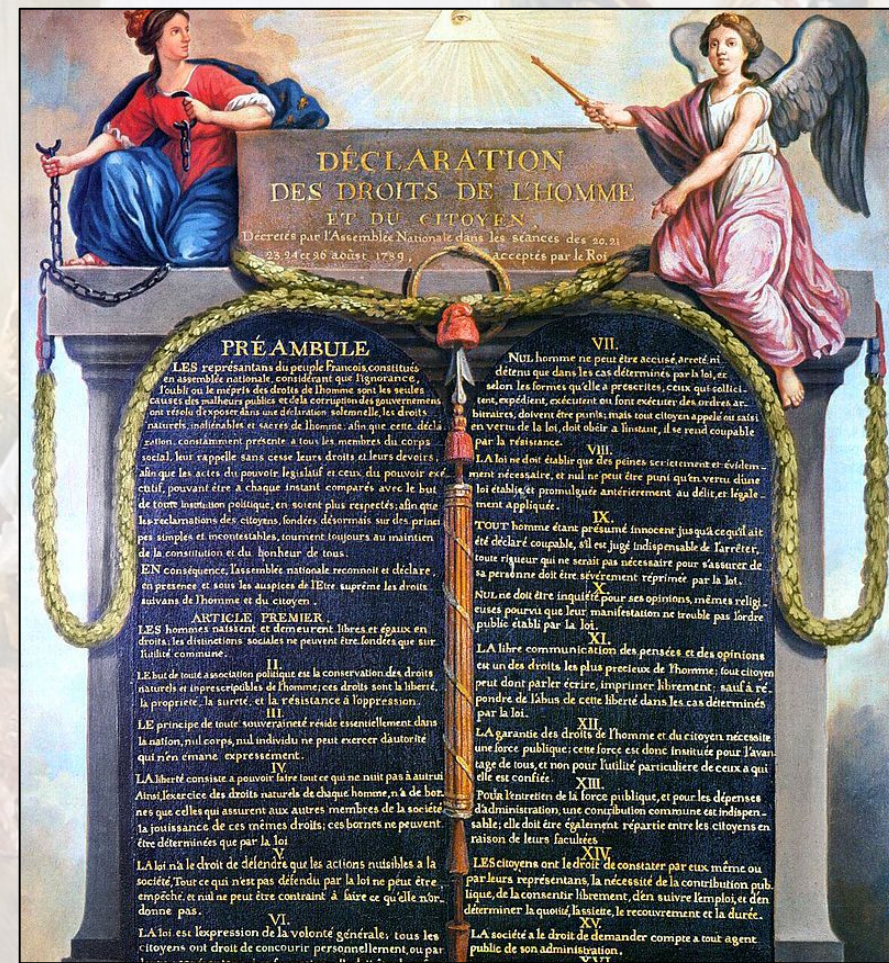 DÉCLARATION
DES DROITS DE L'HOMME
ET DU CITOYEN,
Décretés par l'Assemblée Nationale dans les séances des 20. 21
23. 24 et 26 août 1789, acceptés par le Roi
PRÉAMBULE
LES représentans du peuple François, constitués
en assemblée nationale, considérant que l'ignorance,
l'oubli ou le mépris des droits de l'homme sont les seules
causes des malheurs publics et de la corruption des gouvernemens
ont résolu d'exposer dans une déclaration solemnelle, les droits
naturels, inaliénables et sacrés de l'homme; afin que cette décla
ration, constamment présente a tous les membres du corps
social, leur rappelle sans cesse leurs droits et leurs devoirs,
afin que les actes du pouvoir legislatif et ceux du pouvoir exé
cutif, pouvant être a chaque instant comparés avec le but
de toute institution politique, en soient plus respectés; afin que
les reclamations des citoyens, fondées désormais sur des princi
pes simples et incontestables, tournent toujours au maintien
de la constitution et du bonheur de tous.
EN conséquence, l'assemblée nationale reconnoit et déclare,
en presence et sous les auspices de l'Etre suprême les droits
suivans de l'homme et du citoyen.
ARTICLE PREMIER.
LES hommes naissent et demeurent libres et égaux en
droits. les distinctions sociales ne peuvent être fondées que sur
l'utilité commune.
II.
LE but de toute association politique est la conservation des droits
naturels et inprescriptibles de l'homme; ces droits sont la liberté,
la propriete, la sureté, et la résistance à l'oppression.
III.
LE principe de toute souveraineté réside essentiellement dans
la nation, nul corps, nul individu ne peut exercer d'autorité
qui n'en émane expressement.
IV.
LA liberté consiste a pouvoir faire tout ce qui ne nuit pas à autrui
Ainsi, l'exercice des droits naturels de chaque homme, n'a de bor
nes que celles qui assurent aux autres membres de la société
la jouissance de ces mêmes droits; ces bornes ne peuvent
être déterminées que par la loi
V.
LA loi n'a le droit de défendre que les actions nuisibles a la
société. Tout ce qui n'est pas défendu par la loi ne peut être
empêché, et nul ne peut être contraint à faire ce qu'elle n'or-
donne pas.
VI.
LA loi est l'expression de la volonté générale; tous les
citoyens ont droit de concourir personnellement, ou par
VII.
NUL homme ne peut être accusé, arreté, ni
détenu que dans les cas déterminés par la loi, et
selon les formes qu'elle a prescrites, ceux qui sollici-
tent, expédient, exécutent ou font exécuter des ordres ar-
bitraires, doivent être punis; mais tout citoyen appelé ou saisi
en vertu de la loi, doit obéir a l'instant, il se rend coupable
par la résistance.
VIII.
LA loi ne doit établir que des peines strictement et évidem-
ment nécessaire, et nul ne peut être puni qu'en vertu d'une
loi établie et promulguée antérierement au délit, et légale-
ment appliquée.
IX.
TOUT homme étant présumé innocent jusqu'a ce qu'il ait
été déclaré coupable, s'il est jugé indispensable de l'arrêter,
toute rigueur qui ne serait pas nécessaire pour s'assurer de
sa personne doit être sévèrement réprimée par la loi.
X.
NUL ne doit être inquiété pour ses opinions, mêmes religi-
euses pourvu que leur manifestation ne trouble pas l'ordre
public établi par la loi.
XI.
LA libre communication des pensées et des opinions
est un des droits les plus precieux de l'homme; tout citoyen
peut dont parler écrire, imprimer librement; sauf à ré-
pondre de l'abus de cette liberté dans les cas déterminés
par la loi.
XII.
LA garantie des droits de l'homme et du citoyen nécessite
une force publique; cette force est donc instituée pour l'avan-
tage de tous, et non pour l'utilité particuliere de ceux a qui
elle est confiée.
XIII.
Pour l'entretien de la force publique, et pour les dépenses
d'administration, une contribution commune est indispen-
sable; elle doit être également répartie entre les citoyens en
raison de leurs facultées
XIV.
LES citoyens ont le droit de constater par eux même ou
par leurs représentans, la nécessité de la contribution pub-
lique, de la consentir librement, d'en suivre l'emploi, et d'en
déterminer la quotité, l'assiette, le recouvrement et la durée.
XV.
LA société a le droit de demander compte a tout agent
public de son administration.
XVI